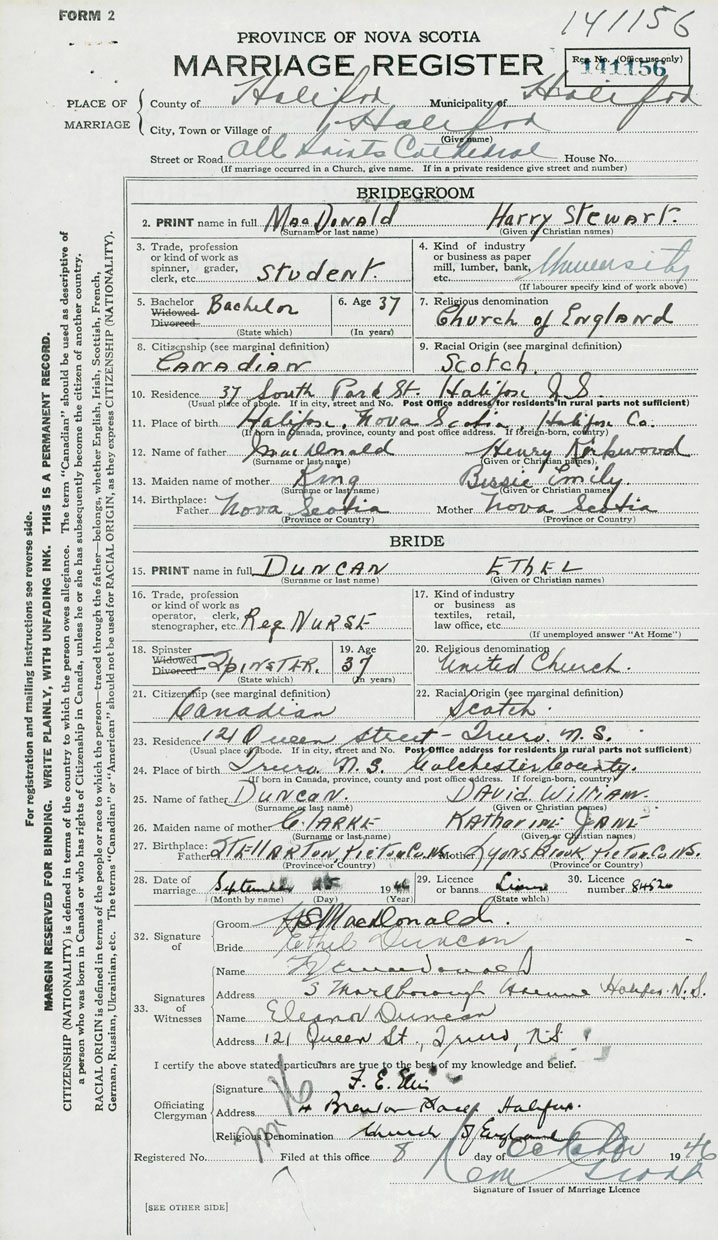 FORM 2
141156
PROVINCE OF NOVA SCOTIA
MARRIAGE REGISTER
Reg. No. (Office use only)
141156
PLACE OF MARRIAGE
County of Halifax Municipality of Halifax
City, Town or Village of Halifax
(Give name)
Street or Road All Saints Cathedral House No.
(If marriage occurred in a Church, give name. If in a private residence give street and number)
BRIDEGROOM
2. PRINT name in full MacDonald Harry Stewart.
(Surname or last name) (Given or Christian names)
3. Trade, profession or kind of work as spinner, grader, clerk, etc. Student.
4. Kind of industry or business as paper mill, lumber, bank, etc. University
(If labourer specify kind of work above)
5. Bachelor Widowed Divorced Bachelor
(State which)
6. Age 37
(In years)
7. Religious denomination
Church of England
8. Citizenship (see marginal definition)
Canadian
9. Racial Origin (see marginal definition)
Scotch.
10. Residence 37 South Park St. Halifax N.S.
(Usual place of abode. If in city, street and No. Post Office address for residents in rural parts not sufficient)
11. Place of birth Halifax, Nova Scotia, Halifax Co.
(If born in Canada, province, county and post office address. If foreign-born, country)
12. Name of father MacDonald Henry Kirkwood
(Surname or last name) (Given or Christian names)
13. Maiden name of mother King Bessie Emily.
(Surname or last name) (Given or Christian names)
14. Birthplace: Father Nova Scotia Mother Nova Scotia
(Province or Country) (Province or Country)
BRIDE
15. PRINT name in full DUNCAN ETHEL
(Surname or last name) (Given or Christian names)
16. Trade, profession or kind of work as operator, clerk, stenographer, etc. Reg NURSE
17. Kind of industry or business as textiles, retail, law office, etc.
(If unemployed answer "At Home")
18. Spinster Widowed Divorced SPINSTER.
(State which)
19. Age 37
(In years)
20. Religious denomination
United Church.
21. Citizenship (see marginal definition)
Canadian
22. Racial Origin (see marginal definition)
Scotch.
23. Residence 121 Queen Street - Truro. N.S.
(Usual place of abode. If in city, street and No. Post Office address for residents in rural parts not sufficient)
24. Place of birth Truro. N.S. Colchester County.
(If born in Canada, province, county and post office address. If foreign-born, country)
25. Name of father DUNCAN. DAVID. WILLIAM.
(Surname or last name) (Given or Christian names)
26. Maiden name of mother CLARKE KATHARINE JANE
(Surname or last name) (Given or Christian names)
27. Birthplace: Father STELLARTON, PICTOU CO. N.S. Mother Lyons Brook, Pictou Co. N.S.
(Province or Country) (Province or Country)
28. Date of marriage September 1946
(Month by name) (Day) (Year)
29. License or banns
(State which)
30. License number 84520
32. Signature of
Groom HS MacDonald.
Bride Ethel Duncan
33. Signatures of Witnesses
Name
Address 5 Marlborough Avenue Halifax. N.S.
Name Eleanor Duncan
Address 121 Queen St., Truro, N.S.
I certify the above stated particulars are true to the best of my knowledge and belief.
Officiating Clergyman
Signature F. E.
Address Halifax.
Religious Denomination Church of England
Registered No. Filed at this office 8 day of October 1946
Signature of Issuer of Marriage Licence
[SEE OTHER SIDE]
For registration and mailing instructions see reverse side.
MARGIN RESERVED FOR BINDING. WRITE PLAINLY, WITH UNFADING INK. THIS IS A PERMANENT RECORD.
CITIZENSHIP (NATIONALITY) is defined in terms of the country to which the person owes allegiance. The term "Canadian" should be used as descriptive of
a person who was born in Canada or who has rights of Citizenship in Canada, unless he or she has subsequently become the citizen of another country.
RACIAL ORIGIN is defined in terms of the people or race to which the person—traced through the father—belongs, whether English, Irish, Scottish, French,
German, Russian, Ukrainian, etc. The terms "Canadian" or "American" should not be used for RACIAL ORIGIN, as they express CITIZENSHIP (NATIONALITY).